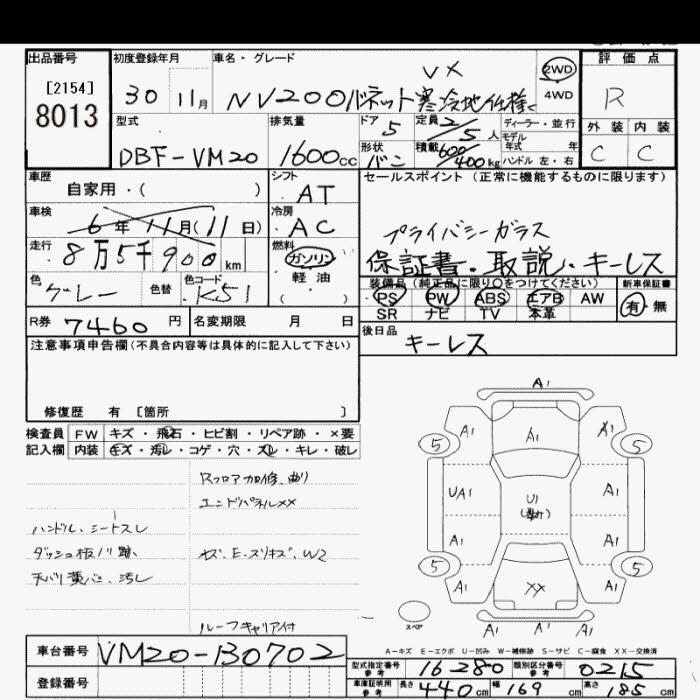 出品番号
[2154]
8013
初度登録年月
30 11月
車名・グレード
VX
NV200バネット寒冷地仕様
2WD
4WD
評価点
R
外装 内装
C C
型式
DBF-VM20
排気量
1600cc
ドア
5
定員 2/5人
ディーラー・並行
モデル
年式 年
形状
バン
積載 600/400kg
ハンドル 左・右
車歴
自家用・( )
シフト
AT
車検
6年11月(11日)
冷房
AC
走行
8万5千900km
燃料
ガソリン
軽油
( )
色
グレー
色替
色コード
K51
セールスポイント (正常に機能するものに限ります)
プライバシーガラス
保証書・取説・キーレス
装備品(純正品に限り○をつけてください)
新車保証書
PS PW ABS エアB AW
SR ナビ TV 本革
有・無
R券 7460円
名変期限 月 日
後日品
キーレス
注意事項申告欄(不具合内容等は具体的に記入して下さい)
修復歴 有 [箇所 ]
検査員
記入欄
FW キズ・飛石・ヒビ割・リペア跡・×要
内装 キズ・汚レ・コゲ・穴・スレ・キレ・破レ
Rフロア加修、曲り
エンドパネルXX
ハンドル、シートスレ
ダッシュ板ノリ跡
天バリ 汚レ
キズ、E・スリキズ、W2
ルーフキャリア付
A1
A1
A1
A1
5
5
UA1
U1
A1
A1
A1
5
5
A1
XX
A1
スペア
A1 A1 A1
A-キズ E-エクボ U-凹み W-補修跡 S-サビ C-腐食 XX-交換済
車台番号 VM20-130702
登録番号
型式指定番号
参考
16280
類別区分番号
参考
0215
車庫証明用
参考
長さ 440cm 幅 169cm 高さ 185cm